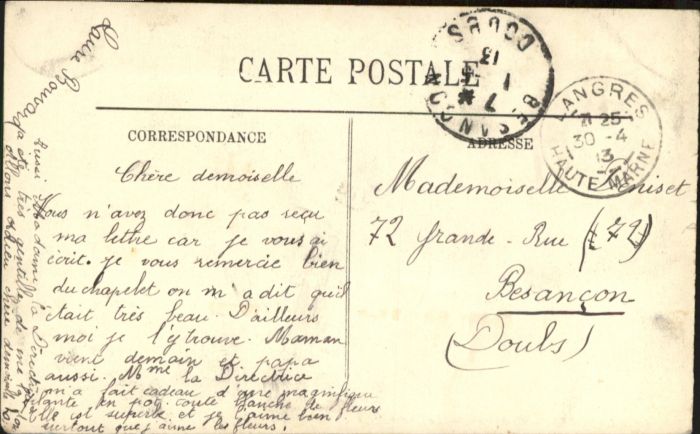 CARTE POSTALE
CORRESPONDANCE
ADRESSE
DOUBS
13
BESANCON
LANGRES
25
30-4
13
HAUTE-MARNE
Chère demoiselle
Vous n'avez donc pas reçu
ma lettre car je vous ai
écrit. je vous remercie bien
du chapelet on m'a dit qu'il
était très beau. D'ailleurs
moi je l'y trouve. Maman
vient demain et papa
aussi. Mme la Directrice
m'a fait cadeau d'une magnifique
plante en pot toute blanche de fleurs
elle est superbe et je l'aime bien
surtout que j'aime les fleurs.
Aussi Madame la Directrice
a été très gentille de me
chère demoiselle
Laure
Mademoiselle
72 Grande-Rue (72)
Besançon
(Doubs)